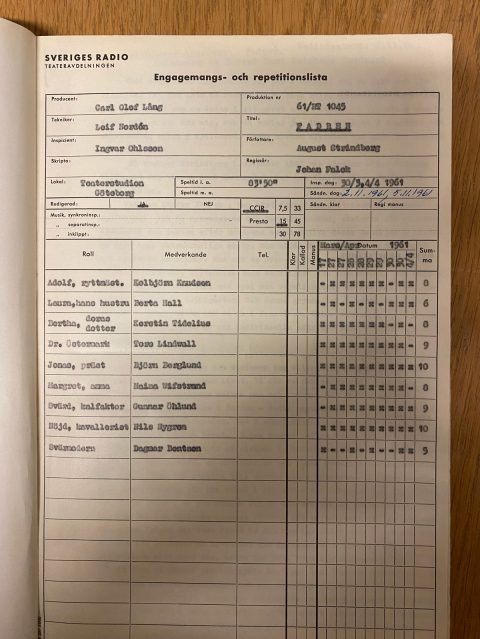 SVERIGES RADIO
TEATERAVDELNINGEN
Engagemangs- och repetitionslista
Producent: Carl Olof Lång Produktion nr 61/HT 1045
Tekniker: Leif Nordén Titel: FADREN
Inspizient: Ingvar Ohlsson Författare: August Strindberg
Skripta: Regissör: Johan Falck
Lokal: Teaterstudion Göteborg Speltid i. a. 83'50" Insp. dag: 30/3,4/4 1961
Speltid m. a. Sändn. dag 2.11.1961, 5.11.1961
Redigerad: Ja NEJ CCIR 7,5 33 Sändn. klar Regi manus
Musik, synkroninsp.:
„ separatinsp.: Presto 15 45
„ inklippt: 30 78
Roll Medverkande Tel. Klar Kallad Manus Mars/Apr Datum 1961 Summa
17 27 27 28 28 29 29 30 30 4/4
Adolf, ryttmäst. Kolbjörn Knudsen 8
Laura,hans hustru Berta Hall 6
Bertha, deras dotter Kerstin Tidelius 8
Dr. Östermark Tore Lindwall 9
Jonas, präst Björn Berglund 10
Margret, amma Naima Wifstrand 8
Svärd, kalfaktor Gunnar Öhlund 9
Nöjd, kavallerist Nils Nygren 10
Svärmodern Dagmar Bentzen 5